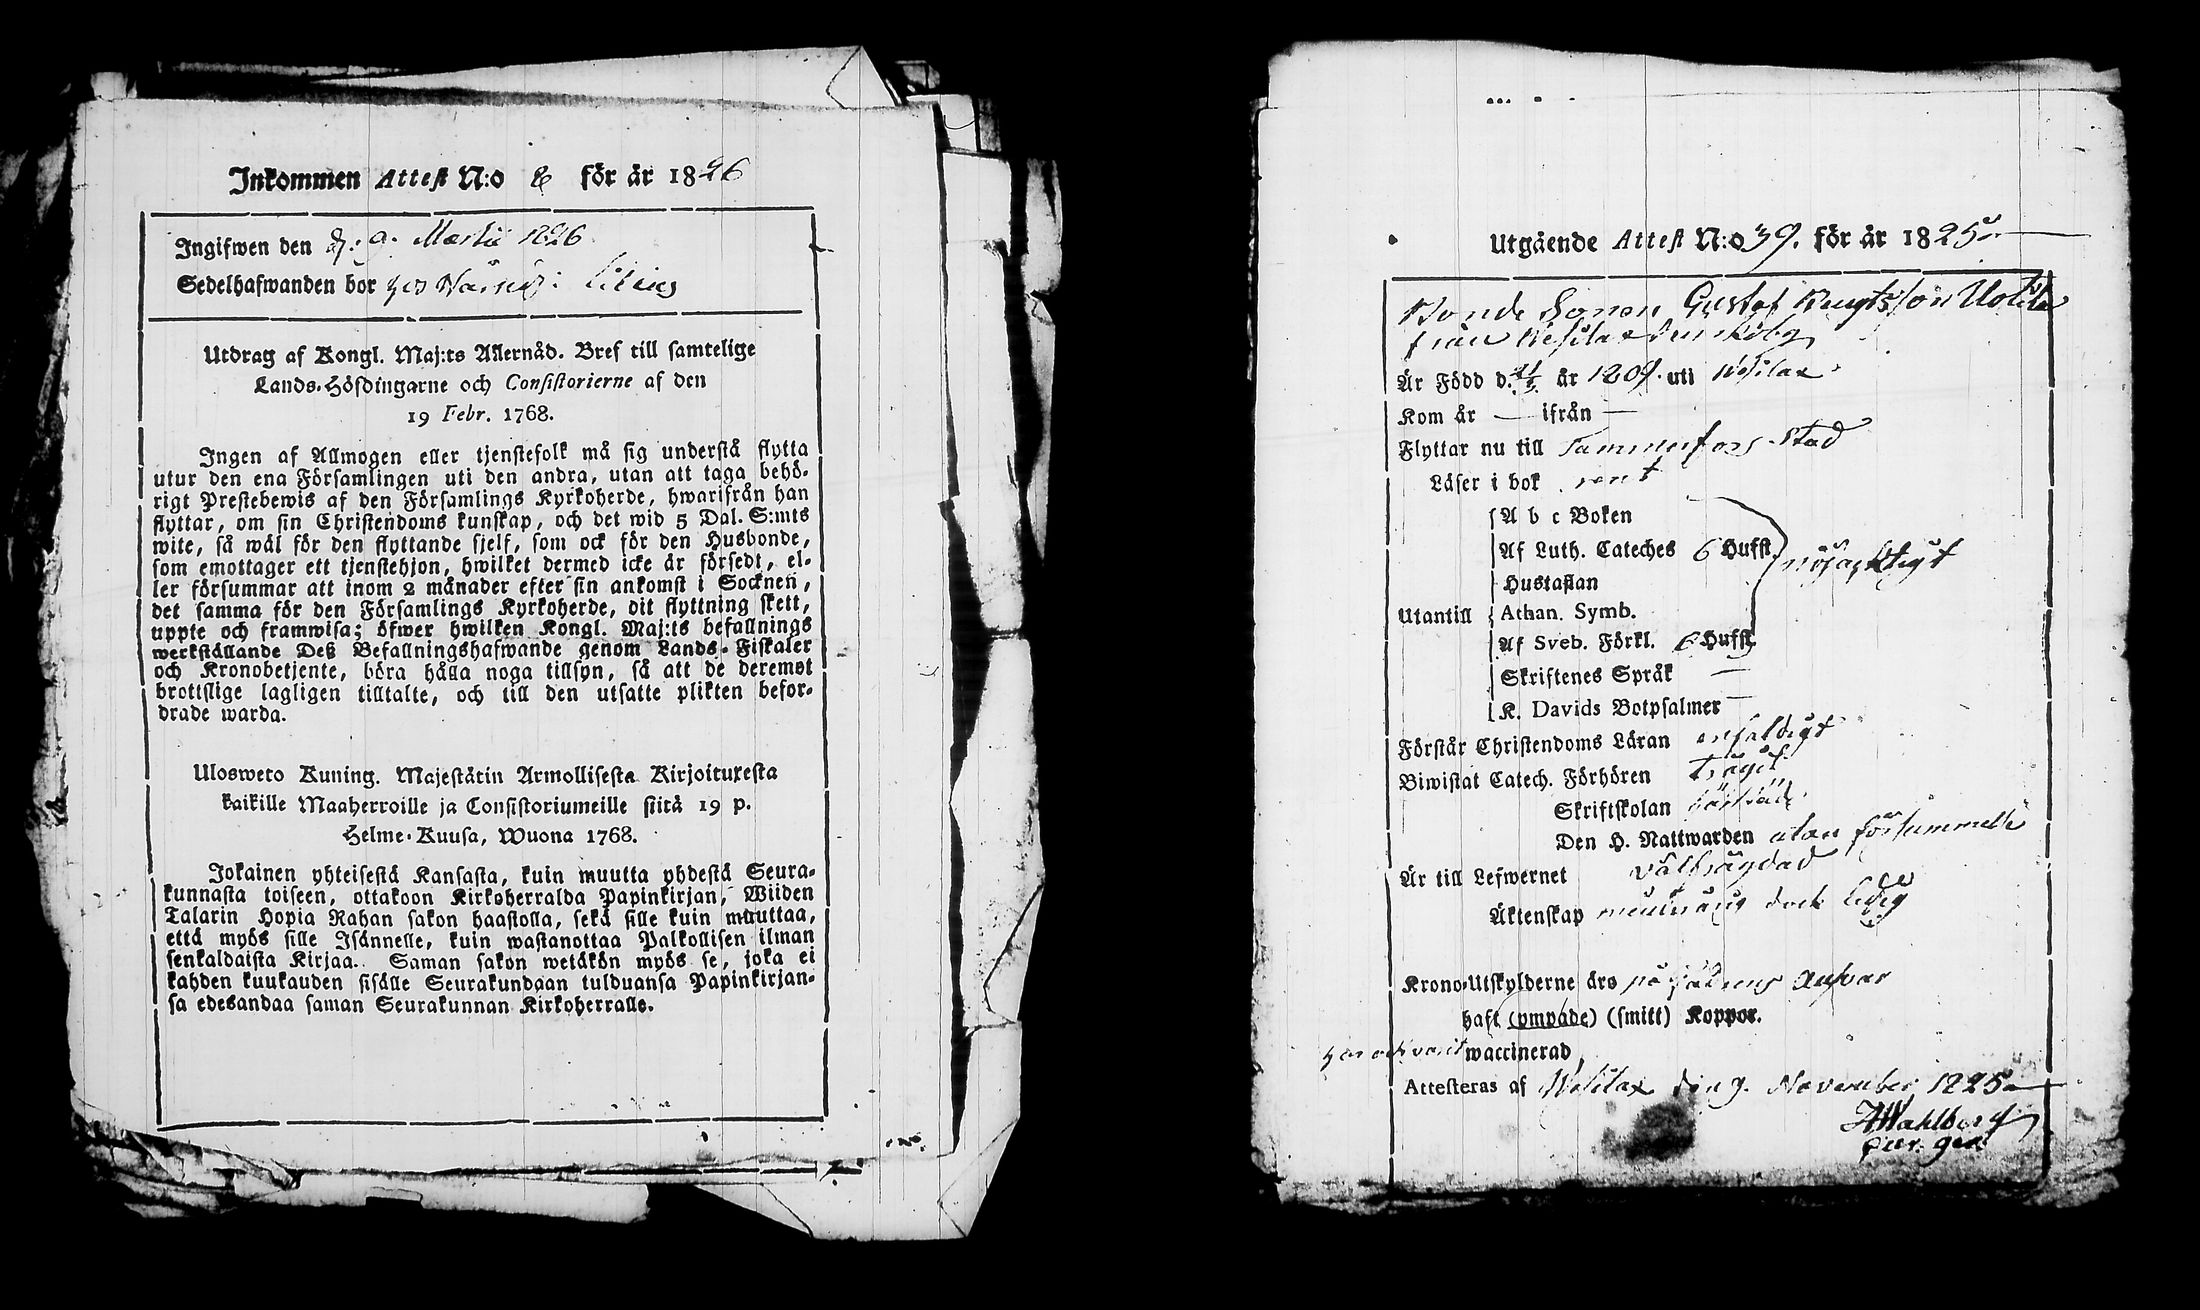 Inkommen Attest N:o 8 för år 1826
Ingifwen den d. 9. Martii 1826
Sedelhafwanden bor hos
Utdrag af Kongl. Maj:ts Allernåd. Bref till samtelige
Lands-Höfdingarne och Consistorierne af den
19 Febr. 1768.
Ingen af Allmogen eller tjenstefolk må sig understå flytta
utur den ena Församlingen uti den andra, utan att taga behö-
rigt Prestebewis af den Församlings Kyrkoherde, hwarifrån han
flyttar, om sin Christendoms kunskap, och det wid 5 Dal. S:mts
wite, så wäl för den flyttande sjelf, som ock för den Husbonde,
som emottager ett tjenstehjon, hwilket dermed icke är försedt, el-
ler försummar att inom 2 månader efter sin ankomst i Socknen,
det samma för den Församlings Kyrkoherde, dit flyttning skett,
uppte och framwisa; öfwer hwilken Kongl. Maj:ts befallnings
werkställande Deß Befallningshafwande genom Lands-Fiskaler
och Kronobetjente, böra hålla noga tillsyn, så att de deremot
brottslige lagligen tilltalte, och till den utsatte plikten befor-
drade warda.
Ulosweto Kuning. Majestätin Armollisesta Kirjoituxesta
kaikille Maaherroille ja Consistoriumeille siitä 19 p.
Helme-Kuusa, Wuona 1768.
Jokainen yhteisestä Kansasta, kuin muutta yhdestä Seura-
kunnasta toiseen, ottakoon Kirkoherralda Papinkirjan, Wiiden
Talarin Hopia Rahan sakon haastolla, sekä sille kuin muuttaa,
että myös sille Isännelle, kuin wastanottaa Palkollisen ilman
senkaldaista Kirjaa. Saman sakon wetäkön myös se, joka ei
kahden kuukauden sisälle Seurakundaan tulduansa Papinkirjan-
sa edesandaa saman Seurakunnan Kirkoherralle.
Utgående Attest N:o 39. för år 1825.
Bonde Sonen Gustaf Bengtsson Uotila
från Wesilax
Är Född d. år 1809. uti Wesilax
Kom år — ifrån —
Flyttar nu till Tammerfors Stad
Läser i bok rent
A b c Boken
Af Luth. Cateches 6 Hufst. nöjaktigt
Hustaflan
Utantill Athan. Symb.
Af Sveb. Förkl. 6 Hufst.
Skriftenes Språk —
K. Davids Botpsalmer —
Förstår Christendoms Läran enfaldigt
Biwistat Catech. Förhören trägit
Skriftskolan
Den H. Nattwarden utan försummelse
Är till Lefwernet välfrägdad
Äktenskap dock ledig
Krono-Utskylderne äro på fädrens answar
haft (ympade) (smitt) Koppor.
waccinerad
Attesteras af Wesilax den 9. November 1825
HWahlberg